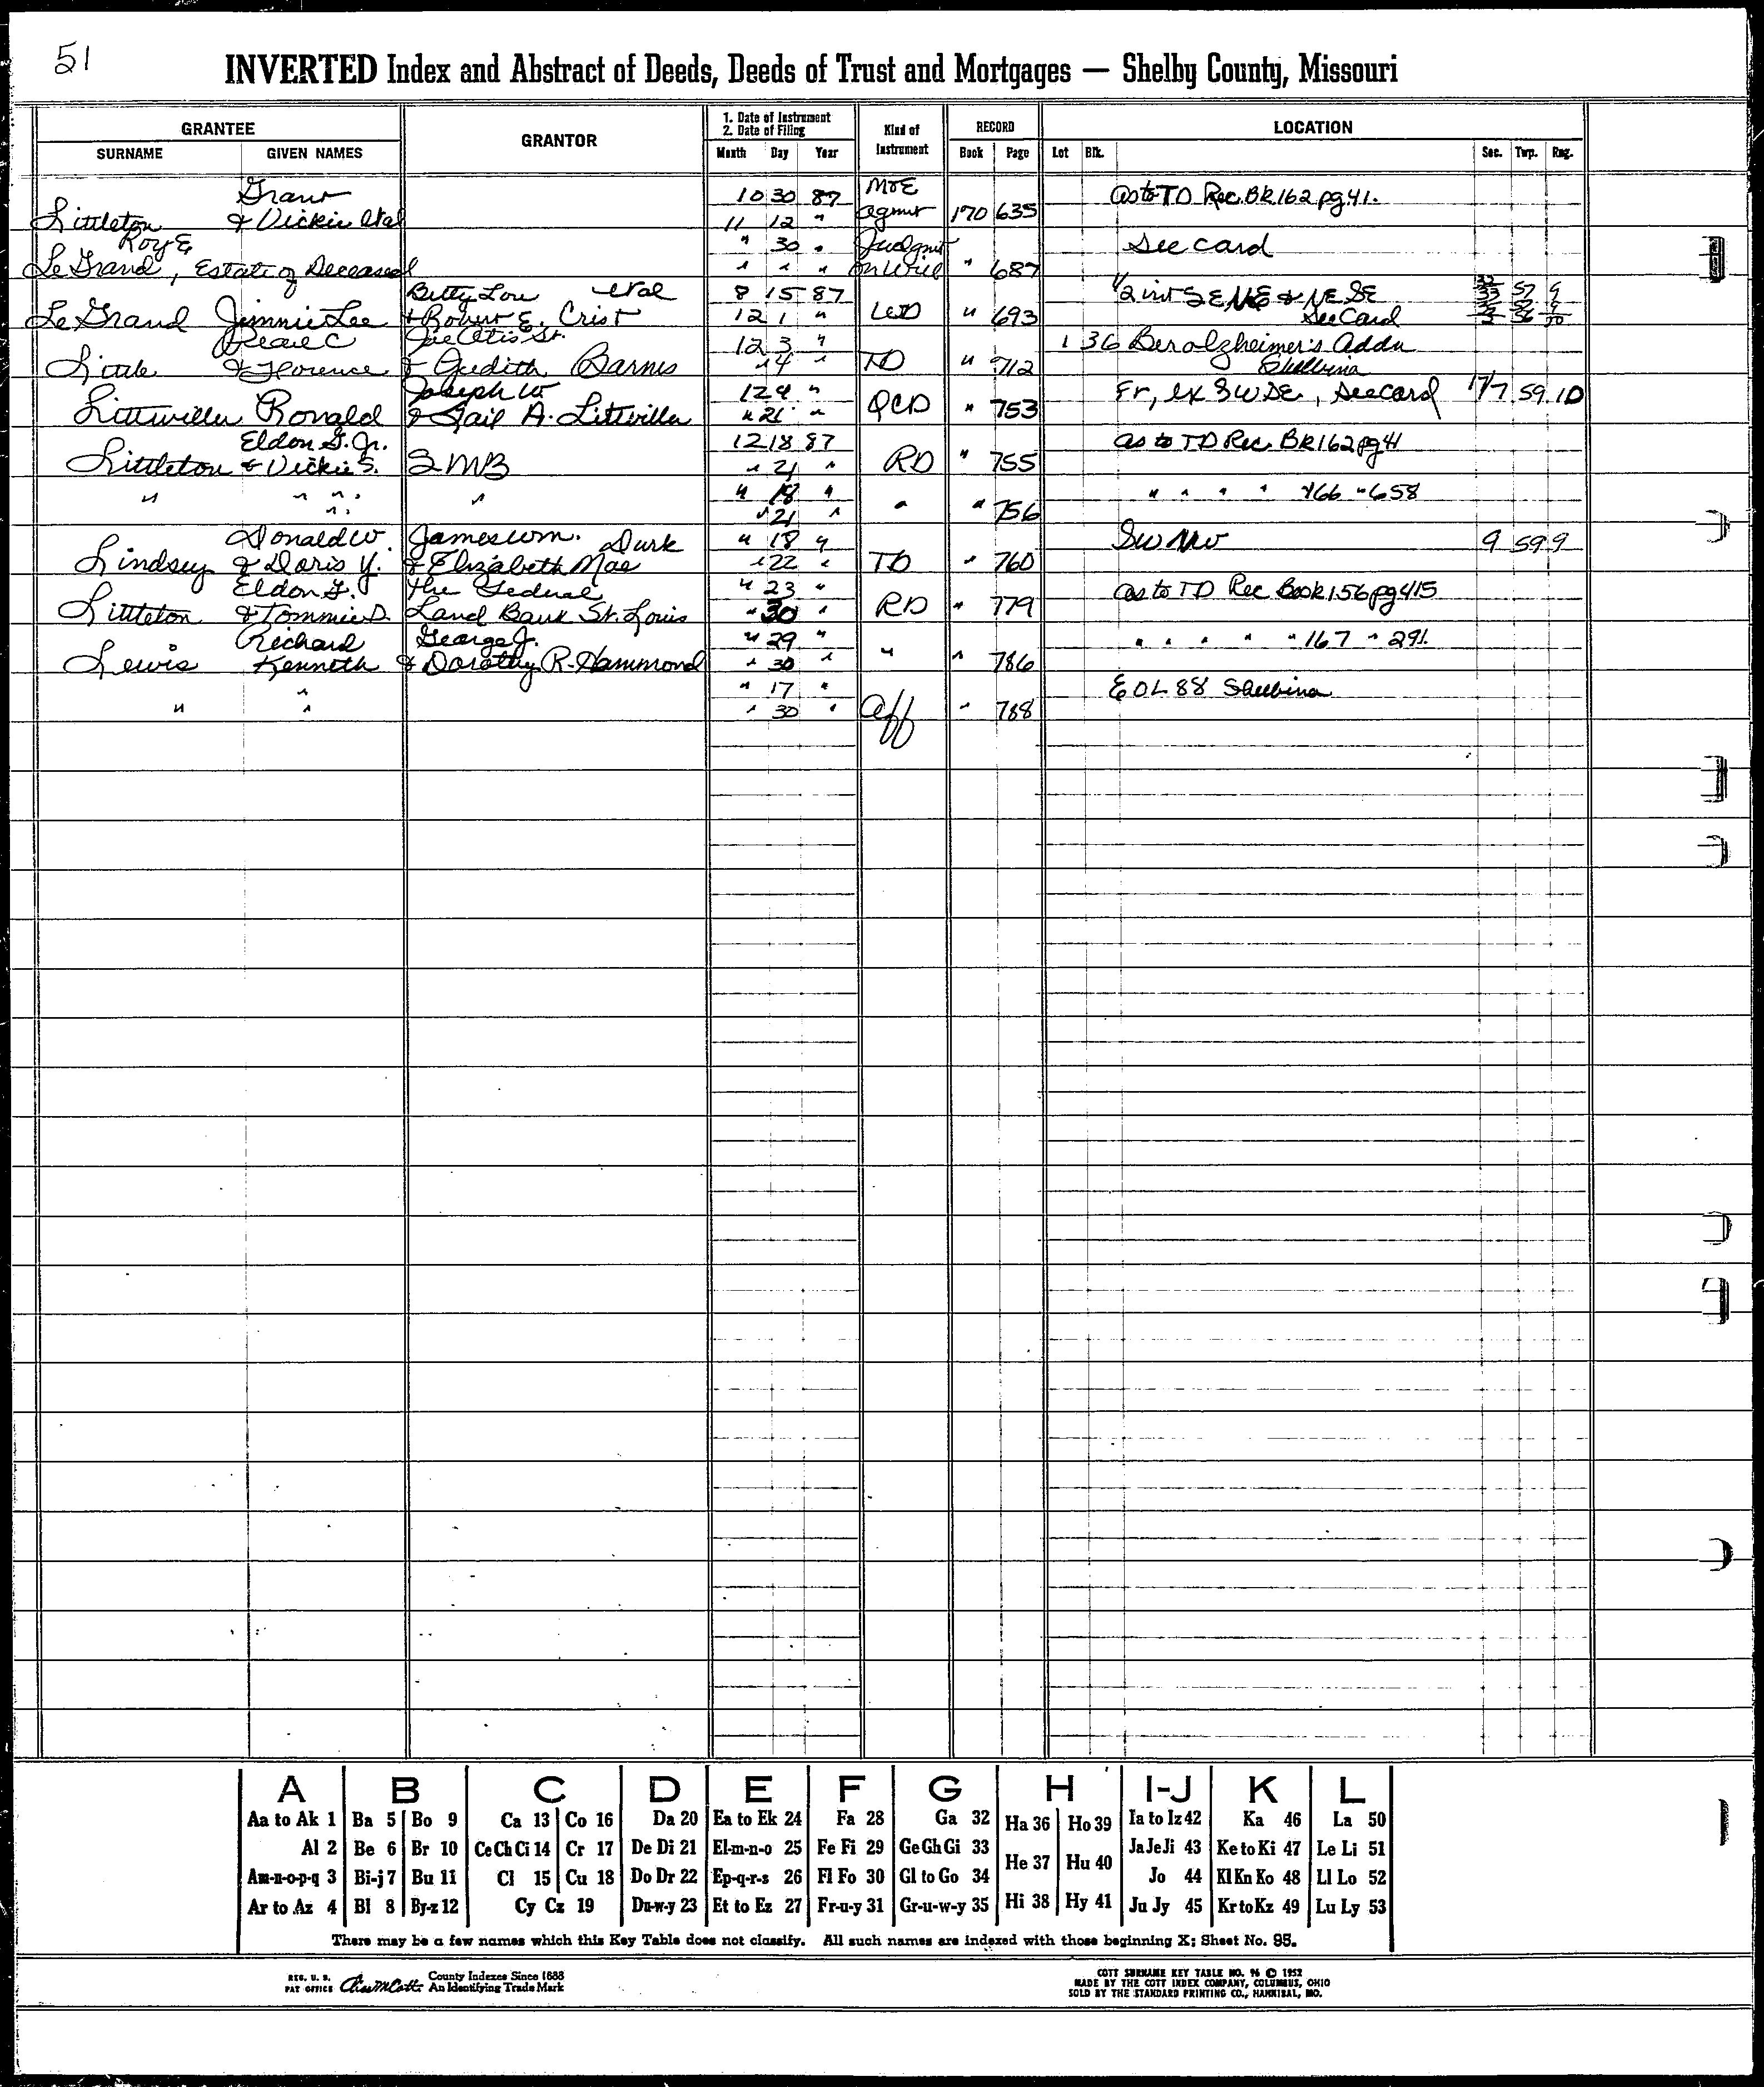 51
INVERTED Index and Abstract of Deeds, Deeds of Trust and Mortgages — Shelby County, Missouri
GRANTEE GRANTOR 1. Date of Instrument 2. Date of Filing Kind of Instrument RECORD LOCATION
SURNAME GIVEN NAMES Month Day Year Book Page Lot Blk. Sec. Twp. Rng.
Grant 10 30 87 MTE as to TD Rec. BK 162 pg 41.
Littleton & Vickie etal 11 12 " agmt 170 635
Roy E " 30 " Judgmt See card
LeGrand, Estate of Deceased " " " on Will " 687
Betty Lou etal 8 15 87 1/2 int SE NE & NE SE 57 9
LeGrand Jimmie Lee & Robert E. Crist 12 1 " WD " 693 See Card 56
Pearl C Joe Otis Sr. 12 3 " 1 36 Berolzheimer's Addn
Little & Florence & Judith Barnes " 4 " TD " 712 Shelbina
Joseph W. 12 4 " Fr, ex SW SE, See card 17/7 59 10
Littwiller Ronald & Gail A. Littwiller " 21 " QCD " 753
Eldon G. Jr. 12 18 87 as to TD Rec. BK 162 pg 41
Littleton & Vickie S. SMB " 21 " RD " 755
" " " " " 18 " " " " " " 166 " 658
" " " 21 " " " 756
Donald W. James Wm. Durk " 18 " SW NW 9 59 9
Lindsey & Doris Y. & Elizabeth Mae " 22 " TD " 760
Eldon G. The Federal " 23 " as to TD Rec Book 156 pg 415
Littleton & Tommie D. Land Bank St. Louis " 30 " RD " 779
Richard George J. " 29 " " " " " " 167 " 291.
Lewis Kenneth & Dorothy R. Hammond " 30 " " " 786
" " 17 " E OL 88 Shelbina
" " " 30 " Aff " 788
A B C D E F G H I-J K L
Aa to Ak 1 Ba 5 Bo 9 Ca 13 Co 16 Da 20 Ea to Ek 24 Fa 28 Ga 32 Ha 36 Ho 39 Ia to Iz 42 Ka 46 La 50
Al 2 Be 6 Br 10 Ce Ch Ci 14 Cr 17 De Di 21 El-m-n-o 25 Fe Fi 29 Ge Gh Gi 33 He 37 Hu 40 Ja Je Ji 43 Ke to Ki 47 Le Li 51
Am-n-o-p-q 3 Bi-j 7 Bu 11 Cl 15 Cu 18 Do Dr 22 Ep-q-r-s 26 Fl Fo 30 Gl to Go 34 Jo 44 Kl Kn Ko 48 Ll Lo 52
Ar to Az 4 Bl 8 By-z 12 Cy Cz 19 Du-w-y 23 Et to Ez 27 Fr-u-y 31 Gr-u-w-y 35 Hi 38 Hy 41 Ju Jy 45 Kr to Kz 49 Lu Ly 53
There may be a few names which this Key Table does not classify. All such names are indexed with those beginning X; Sheet No. 95.
REG. U. S. PAT OFFICE County Indexes Since 1888 An Identifying Trade Mark
COTT SURNAME KEY TABLE NO. 96 © 1952
MADE BY THE COTT INDEX COMPANY, COLUMBUS, OHIO
SOLD BY THE STANDARD PRINTING CO., HANNIBAL, MO.